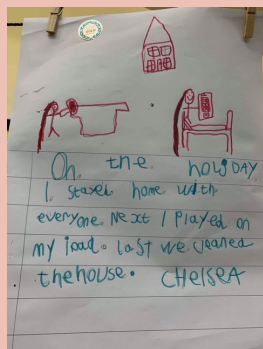 On the holiDAY
I stayed home with
everyone. Next I played on
my ipad. last we cleaned
the house. CHELSEA